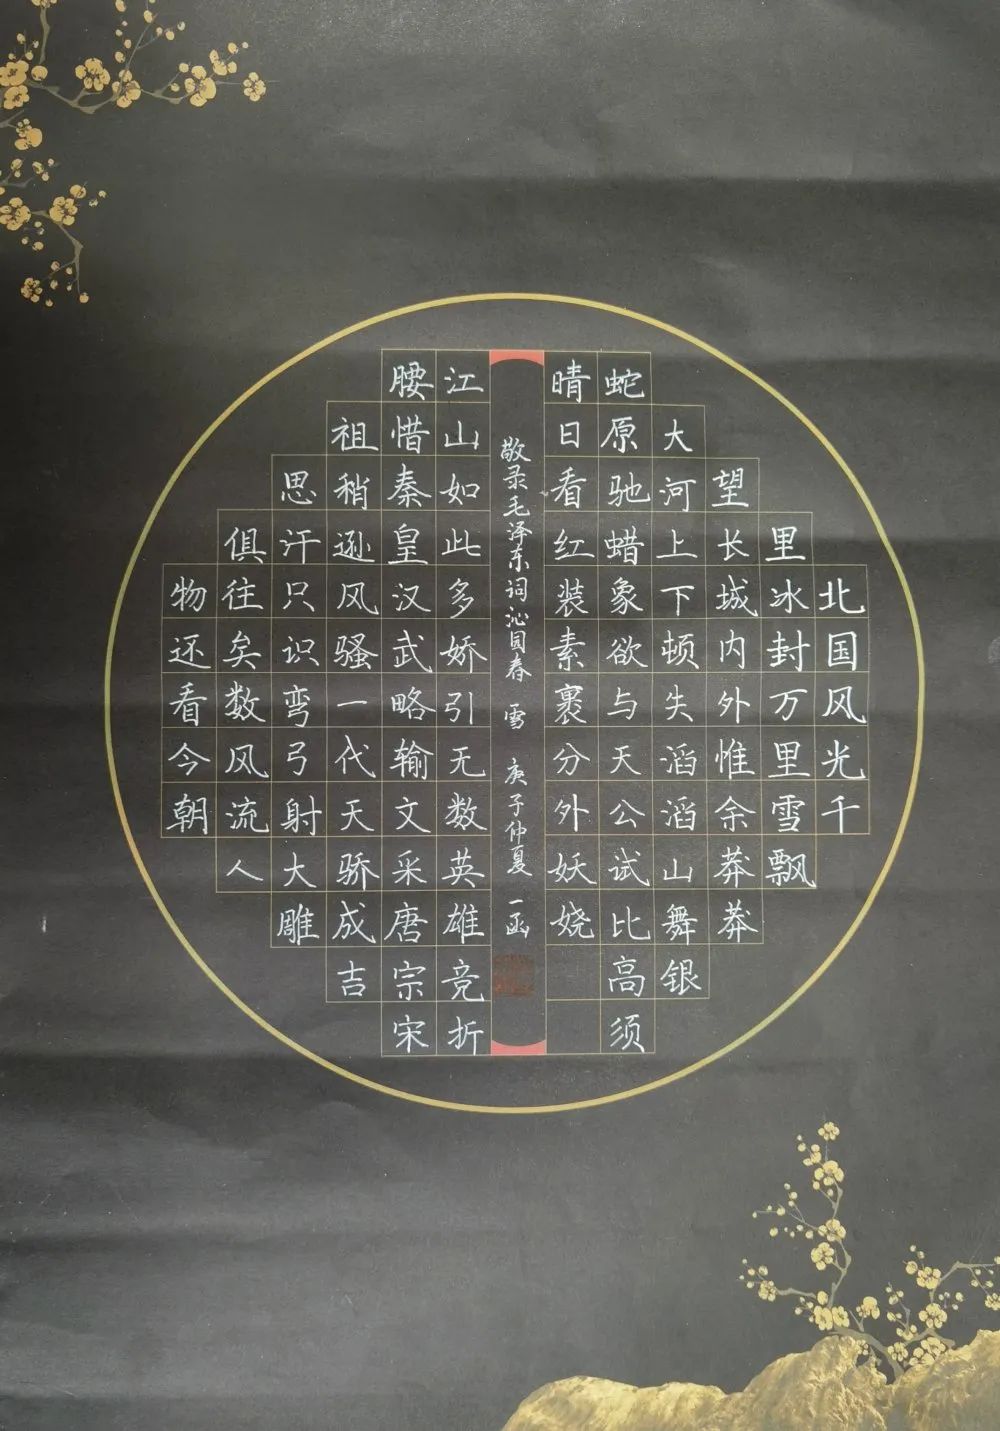 北国风光千
里冰封万里雪飘
望长城内外惟余莽莽
大河上下顿失滔滔山舞银
蛇原驰蜡象欲与天公试比高须
晴日看红装素裹分外妖娆
敬录毛泽东词沁园春 雪 庚子仲夏 一函
江山如此多娇引无数英雄竞折
腰惜秦皇汉武略输文采唐宗宋
祖稍逊风骚一代天骄成吉
思汗只识弯弓射大雕
俱往矣数风流人
物还看今朝